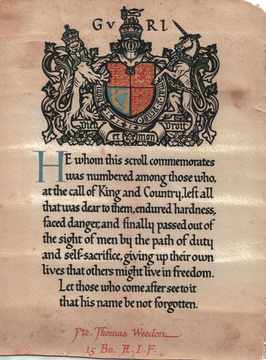 GVRI
Dieu et mon Droit
HE whom this scroll commemorates
was numbered among those who,
at the call of King and Country, left all
that was dear to them, endured hardness,
faced danger, and finally passed out of
the sight of men by the path of duty
and self-sacrifice, giving up their own
lives that others might live in freedom.
Let those who come after see to it
that his name be not forgotten.
Pte. Thomas Weedon
15 Bn. A.I.F.